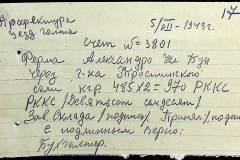 17
Префектура
уезд Голта
5/VII - 1943 г.
счет № 3801
Ферма Александро
через г-ка Тростинского
соли кгр. 485 х 2 = 970 РККС
РККС /Девятьсот семдесят/
Зав. Склада /подпись/ Принял /подпи
С подлинным верно:
Бухгалтер.